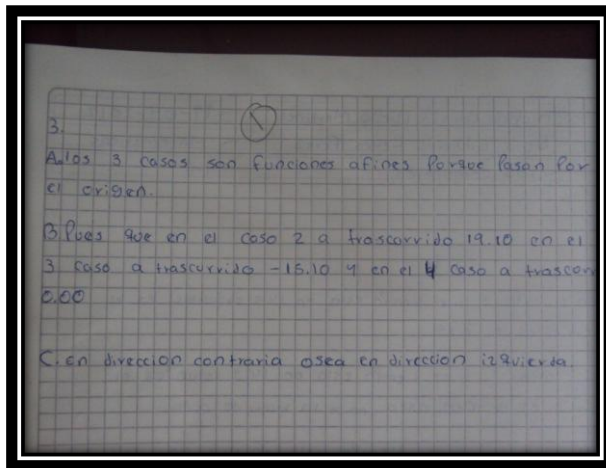 3.
A. los 3 casos son funciones afines Porque Pasan Por
el origen.
B. Pues que en el caso 2 a trascorrido 19.10 en el
3 caso a trascurrido -15.10 y en el 4 caso a trascorr
0.00
C. en direccion contraria osea en direccion izquierda.